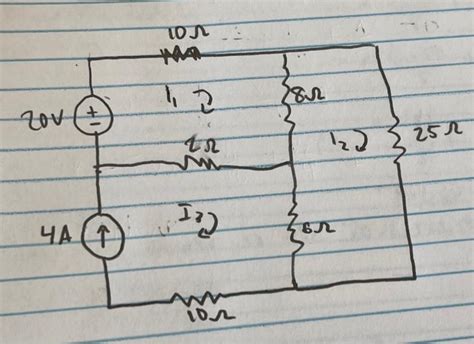 10Ω
I₁
8Ω
20V
2Ω
I₂
25Ω
4A
I₃
6Ω
10Ω